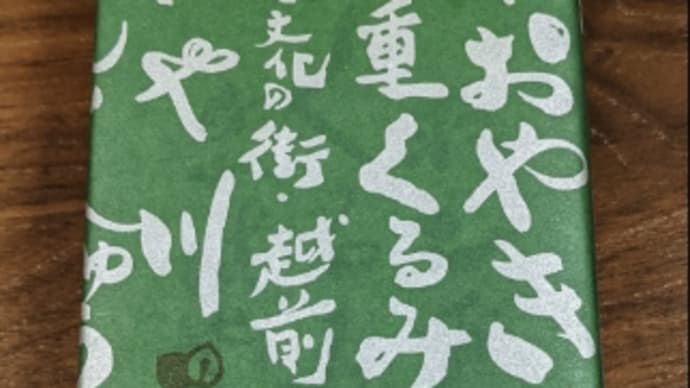 おやき
重くるみ
文化の街・越前
や川